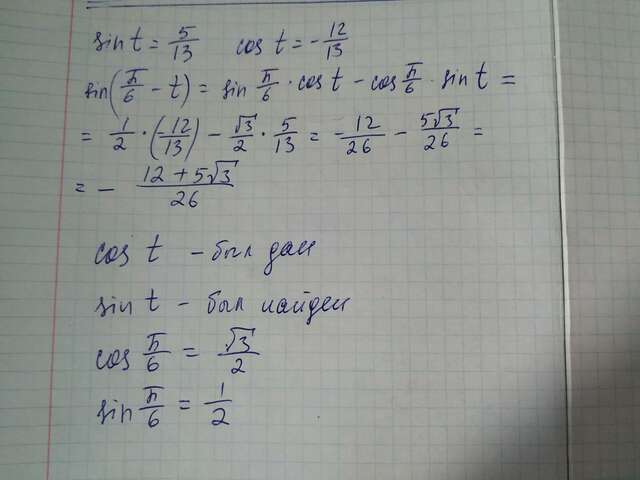 sin t = 5/13 cos t = -12/13
sin(π/6 - t) = sin π/6 · cos t - cos π/6 · sin t =
= 1/2 · (-12/13) - √3/2 · 5/13 = -12/26 - 5√3/26 =
= - (12 + 5√3)/26
cos t - был дан
sin t - был найден
cos π/6 = √3/2
sin π/6 = 1/2